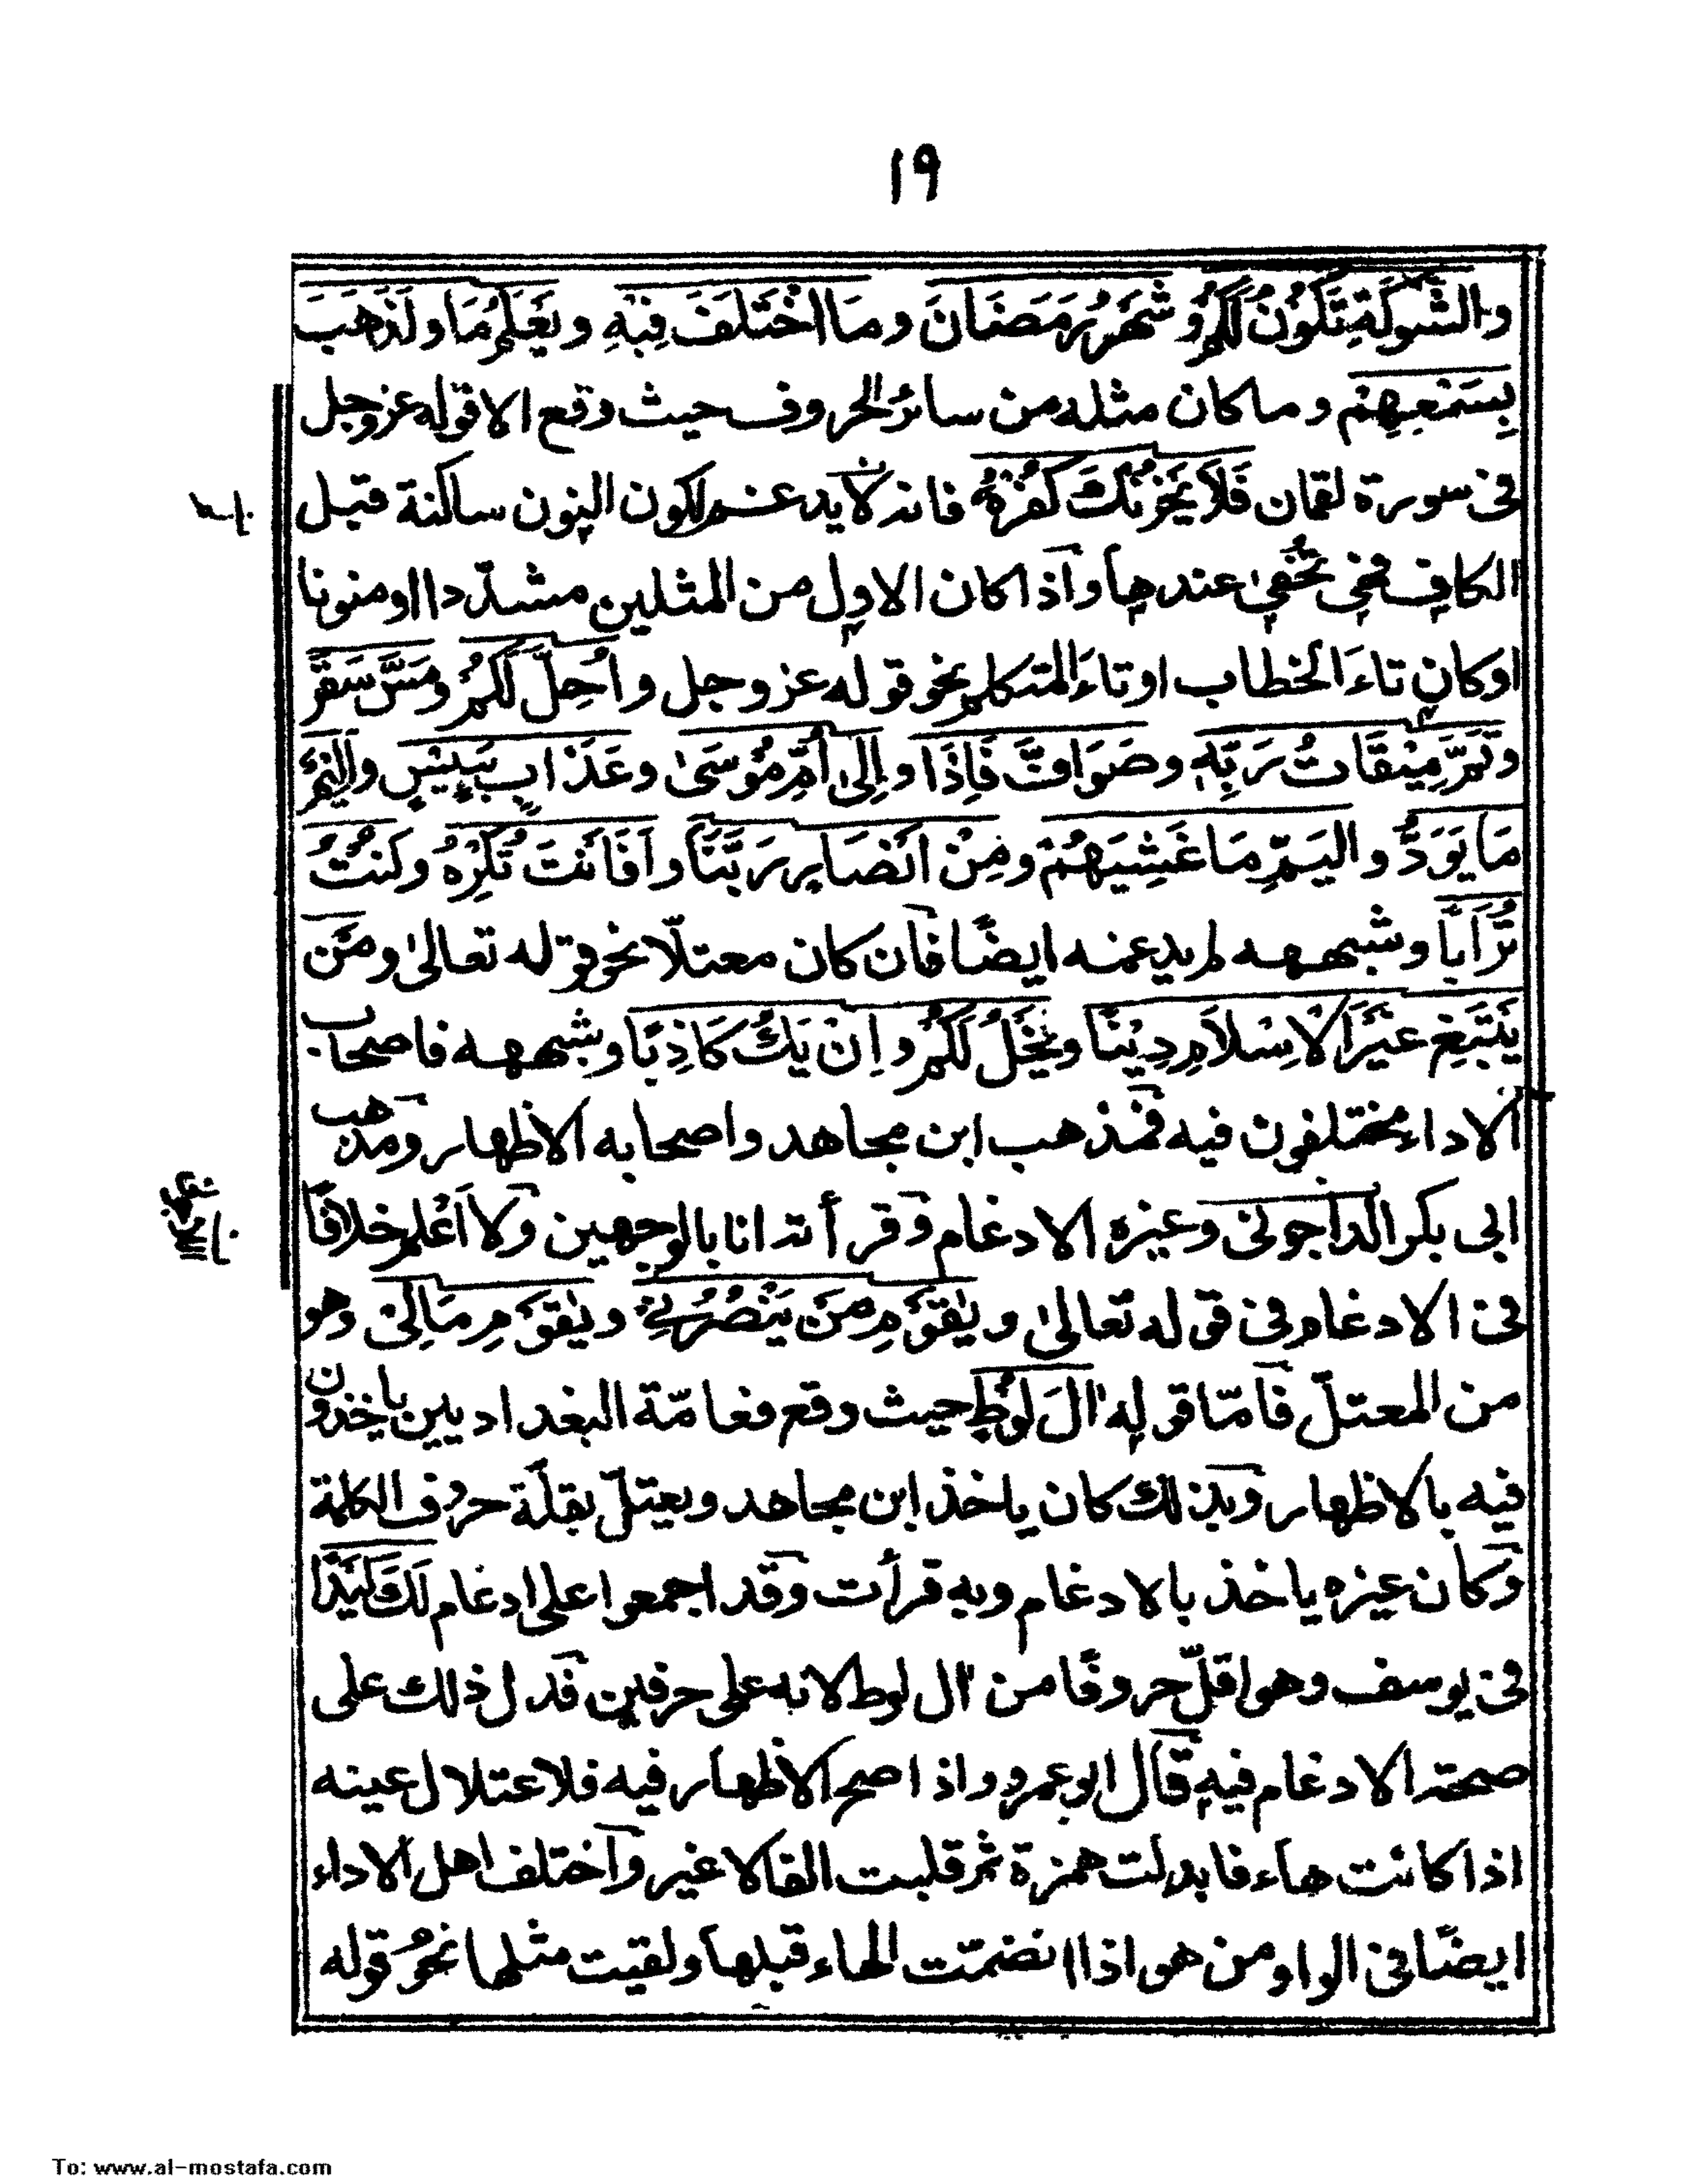 ١٩
والشَّوكَةِ تَكُونُ لَكُمْ وشَهْرُ رَمَضَانَ وما اخْتَلَفَ فِيْهِ ويَعْلَمُ مَا ولَذَهَبَ
بِسَمْعِهِمْ وما كان مثله من سائر الحروف حيث وقع الا قوله عز وجل
فى سورة لقمان فَلَا يَحْزُنْكَ كُفْرُهُ فانه لا يدغم لكون النون ساكنة قبل
الكاف فهى تُخْفىٰ عندها واذا كان الاول من المثلين مشدّدا او منونا
اوكان تاءَ الخطاب او تاءَ المتكلم نحو قوله عز وجل واُحِلَّ لَكُمْ ومَسَّ سَقَرَ
وتَمَّ مِيْقَاتُ رَبِّهٖ وصَوَافَّ فَاِذَا واِلىٰ اُمِّ مُوْسَىٰ وعَذَابٍ بَئِيْسٍ والْيَمِّ
مَا يَوَدُّ والْيَمِّ مَا غَشِيَهُمْ ومِنْ اَنْصَارٍ رَبَّنَا واَفَاَنْتَ تُكْرِهُ وكُنْتُ
تُرَابًا وشبهه لم يدغمه ايضًا فان كان معتلّا نحو قوله تعالىٰ ومَنْ
يَبْتَغِ غَيْرَ الْاِسْلَامِ دِيْنًا ويَخْلُ لَكُمْ واِنْ يَكُ كَاذِبًا وشبهه فاصحاب
الاداء مختلفون فيه فمذهب ابن مجاهد واصحابه الاظهار ومذهب
ابى بكر الداجونى وغيره الادغام وقرأته انا بالوجهين ولا اَعْلم خلافًا
فى الادغام فى قوله تعالىٰ ويٰقَوْمِ مَنْ يَنْصُرُنِيْ ويٰقَوْمِ مَالِىْ وهو
من المعتلّ فامّا قوله اٰلَ لُوْطٍ حيث وقع فعامّة البغداديين ياخذون
فيه بالاظهار وبذلك كان ياخذ ابن مجاهد ويعتلّ بقلّة حروف الكلمة
وكان غيره ياخذ بالادغام وبه قرأت وقد اجمعوا على ادغام لَكَ كَيْدًا
فى يوسف وهو اقلّ حروفًا من اٰل لوط لانه على حرفين فدل ذلك على
صحة الادغام فيه قال ابو عمرو واذا صح الاظهار فيه فلاعتلال عينه
اذا كانت هاء فابدلت همزة ثم قلبت الفا لا غير واختلف اهل الاداء
ايضًا فى الواو من هو اذا انضمّت الهاء قبلها ولقيت مثلها نحو قوله
To: www.al-mostafa.com